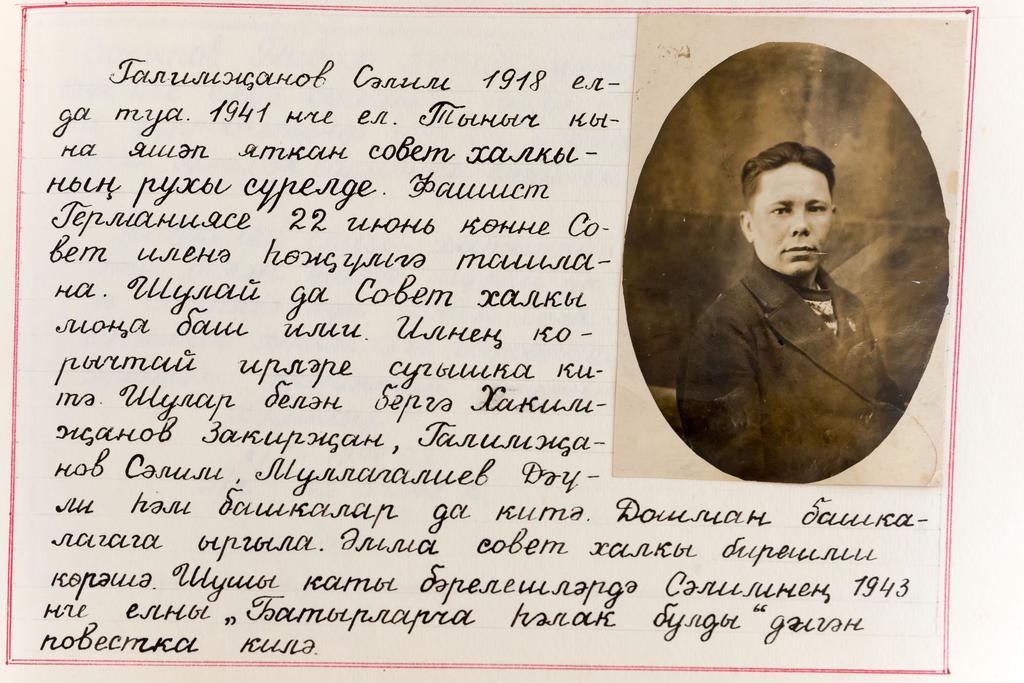 Галимҗанов Сәлим 1918 ел-
да туа. 1941 нче ел. Тыныч кы-
на яшәп яткан совет халкы-
ның рухы сүрелде. Фашист
Германиясе 22 июнь көнне Со-
вет иленә һөҗүмгә ташла-
на. Шулай да Совет халкы
моңа баш ими. Илнең ко-
рычтай ирләре сугышка ки-
тә. Шулар белән бергә Хаким-
җанов Закирҗан, Галимҗа-
нов Сәлим, Муллагалиев Дәү-
ли һәм башкалар да китә. Дошман башка-
лагага ыргыла. Әмма совет халкы бирешми
көрәшә. Шушы каты бәрелешләрдә Сәлимнең 1943
нче елны „Батырларча һәлак булды“ дигән
повестка килә.